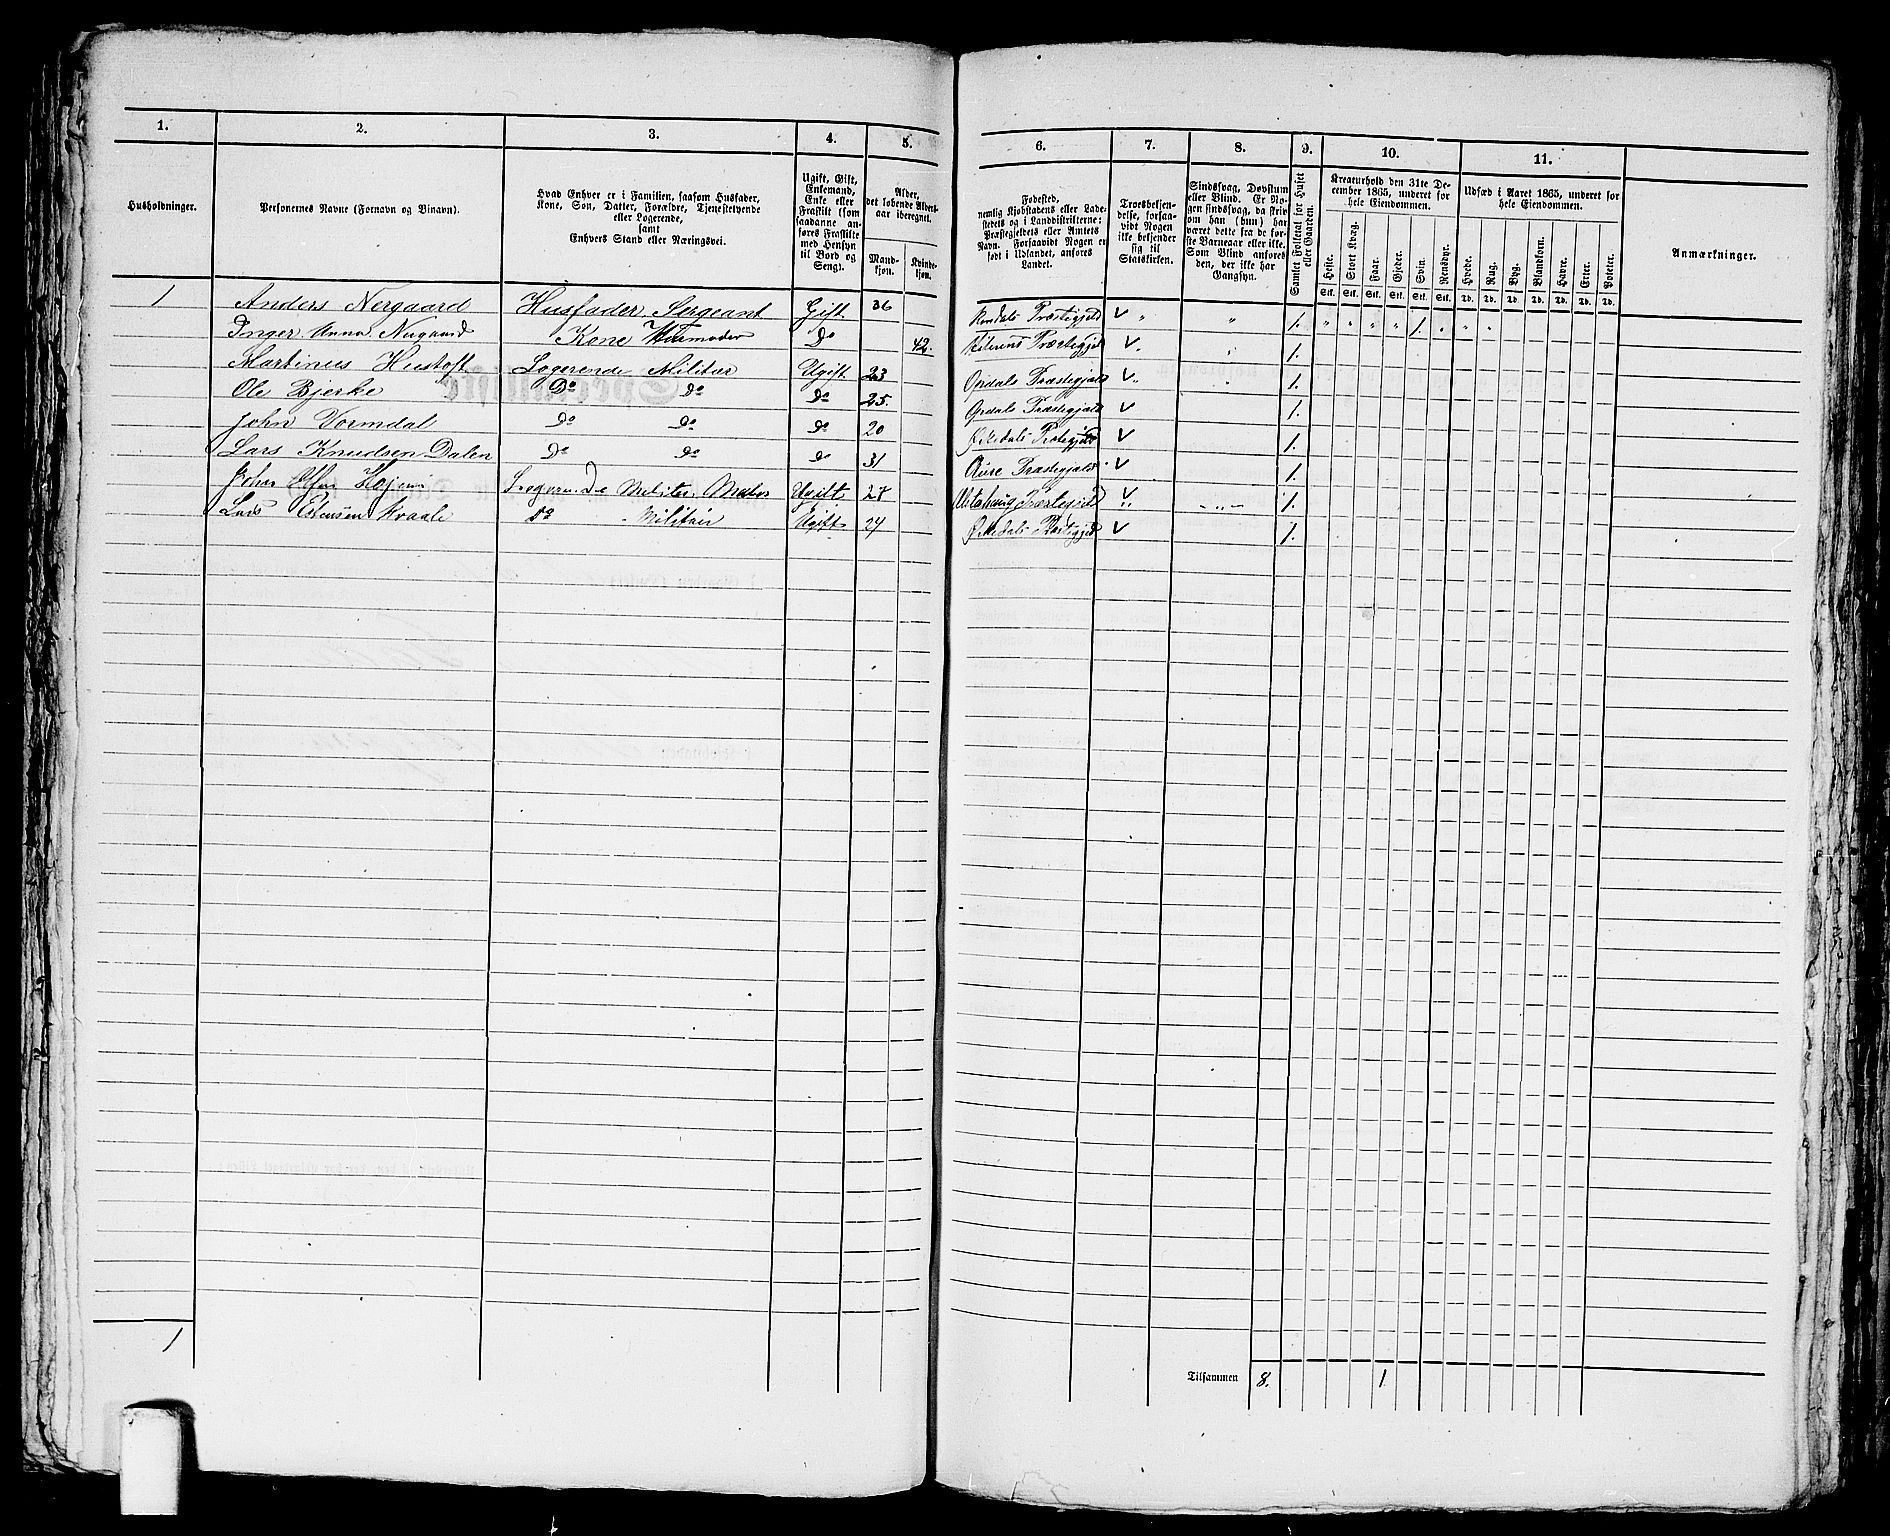 1. 2. 3. 4. 5. 6. 7. 8. 9. 10. 11.
Husholdninger.
Personernes Navne (Fornavn og Binavn).
Hvad Enhver er i Familien, saasom Husfader,
Kone, Søn, Datter, Forældre, Tjenestetyende
eller Logerende,
samt
Enhvers Stand eller Næringsvei.
Ugift, Gift,
Enkemand,
Enke eller
Fraskilt (som
saadanne an-
føres Fraskilte
med Hensyn
til Bord og
Seng).
Alder,
det løbende Alders-
aar iberegnet.
Mand-
kjøn.
Kvinde-
kjøn.
Fødested,
nemlig Kjøbstadens eller Lade-
stedets og i Landdistrikterne:
Præstegjeldets eller Amtets
Navn. Forsaavidt Nogen er
født i Udlandet, anføres
Landet.
Troesbekjen-
delse, forsaa-
vidt Nogen
ikke bekjender
sig til
Statskirken.
Sindssvag, Døvstum
eller Blind. Er No-
gen sindssvag, da skri-
ves om han (hun) har
været dette fra de før-
ste Barneaar eller ikke.
Som Blind anføres
den, der ikke har
Gangsyn.
Samlet Folketal for Huset
eller Gaarden.
Kreaturhold den 31te De-
cember 1865, underet for
hele Eiendommen.
Heste. Stort Kvæg. Faar. Gjeder. Svin. Rensdyr.
Stk. Stk. Stk. Stk. Stk. Stk.
Udsæd i Aaret 1865, underet for
hele Eiendommen.
Hvede. Rug. Byg. Blandkorn. Havre. Erter. Poteter.
Td. Td. Td. Td. Td. Td. Td.
Anmærkninger.
1 Anders Nergaard Husfader Sergeant Gift 36 Præstegjeld √ " " 1. " " " " 1. " " "
Inger Anna Nergaard Kone Do 42. Præstegjeld √ " 1.
Martinus Hustoft Logerende Militær Ugift 23 Opdals Præstegjeld √ 1.
Ole Bjerke Do Do Do 25. Opdals Præstegjeld √ 1.
John Vormdal Do Do Do 20 Ørkedals Præstegjeld √ 1.
Lars Knudsen Dalen Do Do Do 31 Aure Præstegjeld √ 1.
Johan Logerende Militær Ugift 27 Alstahaug Præstegjeld √ " 1.
Lars Kvaale Do Militair Ugift 24 Ørkedals Præstegjeld √ 1.
1
Tilsammen 8. 1